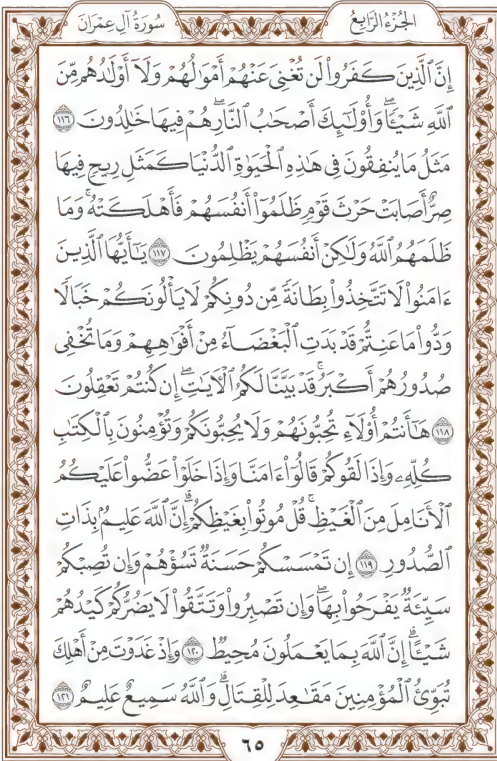 الجُزْءُ الرَّابِعُ
سُورَةُ آلِ عِمْرَانَ
إِنَّ ٱلَّذِينَ كَفَرُواْ لَن تُغْنِيَ عَنْهُمْ أَمْوَٰلُهُمْ وَلَآ أَوْلَٰدُهُم مِّنَ
ٱللَّهِ شَيْـًٔاۖ وَأُوْلَٰٓئِكَ أَصْحَٰبُ ٱلنَّارِۖ هُمْ فِيهَا خَٰلِدُونَ ١١٦
مَثَلُ مَا يُنفِقُونَ فِي هَٰذِهِ ٱلْحَيَوٰةِ ٱلدُّنْيَا كَمَثَلِ رِيحٍ فِيهَا
صِرٌّ أَصَابَتْ حَرْثَ قَوْمٍ ظَلَمُوٓاْ أَنفُسَهُمْ فَأَهْلَكَتْهُۚ وَمَا
ظَلَمَهُمُ ٱللَّهُ وَلَٰكِنْ أَنفُسَهُمْ يَظْلِمُونَ ١١٧ يَٰٓأَيُّهَا ٱلَّذِينَ
ءَامَنُواْ لَا تَتَّخِذُواْ بِطَانَةً مِّن دُونِكُمْ لَا يَأْلُونَكُمْ خَبَالًا
وَدُّواْ مَا عَنِتُّمْ قَدْ بَدَتِ ٱلْبَغْضَآءُ مِنْ أَفْوَٰهِهِمْ وَمَا تُخْفِي
صُدُورُهُمْ أَكْبَرُۚ قَدْ بَيَّنَّا لَكُمُ ٱلْأٓيَٰتِۖ إِن كُنتُمْ تَعْقِلُونَ
١١٨ هَٰٓأَنتُمْ أُوْلَآءِ تُحِبُّونَهُمْ وَلَا يُحِبُّونَكُمْ وَتُؤْمِنُونَ بِٱلْكِتَٰبِ
كُلِّهِۦ وَإِذَا لَقُوكُمْ قَالُوٓاْ ءَامَنَّا وَإِذَا خَلَوْاْ عَضُّواْ عَلَيْكُمُ
ٱلْأَنَامِلَ مِنَ ٱلْغَيْظِۚ قُلْ مُوتُواْ بِغَيْظِكُمْۗ إِنَّ ٱللَّهَ عَلِيمٌۢ بِذَاتِ
ٱلصُّدُورِ ١١٩ إِن تَمْسَسْكُمْ حَسَنَةٌ تَسُؤْهُمْ وَإِن تُصِبْكُمْ
سَيِّئَةٌ يَفْرَحُواْ بِهَاۖ وَإِن تَصْبِرُواْ وَتَتَّقُواْ لَا يَضُرُّكُمْ كَيْدُهُمْ
شَيْـًٔاۗ إِنَّ ٱللَّهَ بِمَا يَعْمَلُونَ مُحِيطٌ ١٢٠ وَإِذْ غَدَوْتَ مِنْ أَهْلِكَ
تُبَوِّئُ ٱلْمُؤْمِنِينَ مَقَٰعِدَ لِلْقِتَالِۗ وَٱللَّهُ سَمِيعٌ عَلِيمٌ ١٢١
٦٥